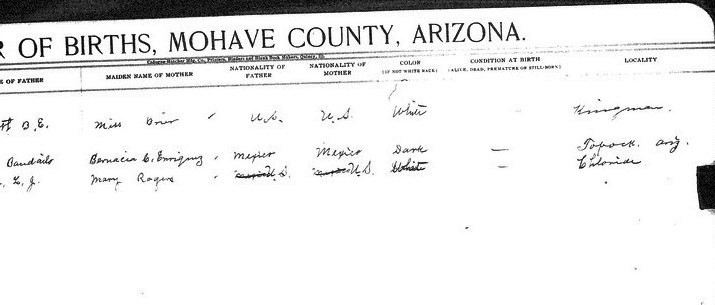 R OF BIRTHS, MOHAVE COUNTY, ARIZONA.
E OF FATHER MAIDEN NAME OF MOTHER NATIONALITY OF FATHER NATIONALITY OF MOTHER COLOR (IF NOT WHITE RACE) CONDITION AT BIRTH (ALIVE, DEAD, PREMATURE OR STILL-BORN) LOCALITY
B. E. Miss U.S. U.S. White — Kingman.
Bernacia C. Enriquez Mexico Mexico Dark — Topock, Ariz.
L. J. Mary Rogers U.S. U.S. White — Chloride